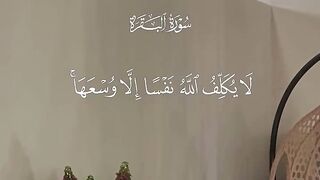 سُورَةُ الْبَقَرَةِ
لَا يُكَلِّفُ ٱللَّهُ نَفۡسًا إِلَّا وُسۡعَهَاۚ